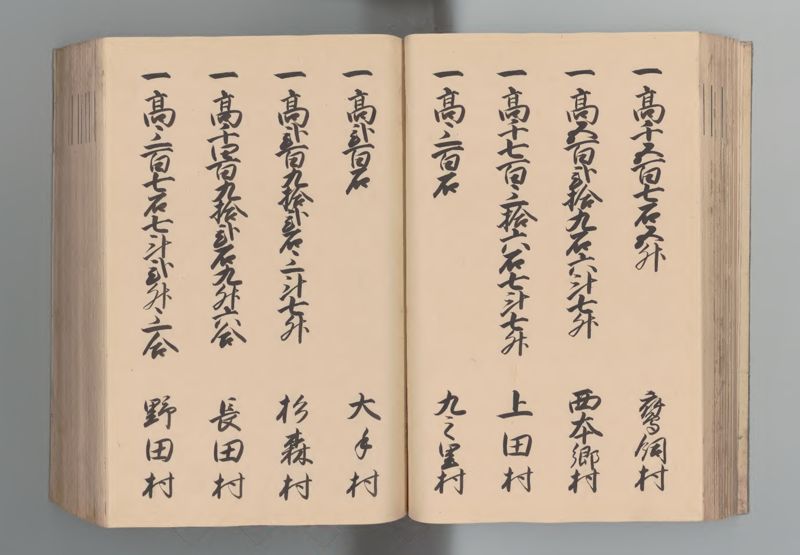 一高千五百七石五升 鷹飼村
一高五百弐拾九石六斗七升 西本郷村
一高千七百三拾六石七斗七升 上田村
一高三百石 九之里村
一高弐百石 大手村
一高弐百九拾弐石三斗七升 杉森村
一高千四百九拾弐石九升六合 長田村
一高三百七石七斗弐升三合 野田村